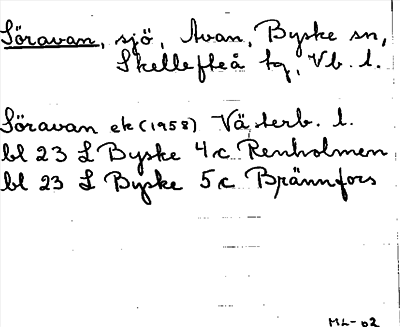 Söravan, sjö, Avan, Byske sn,
Skellefteå tg, Vb. l.
Söravan ek (1958) Västerb. l.
bl 23 L Byske 4c Renholmen
bl 23 L Byske 5c Brännfors
ML-02